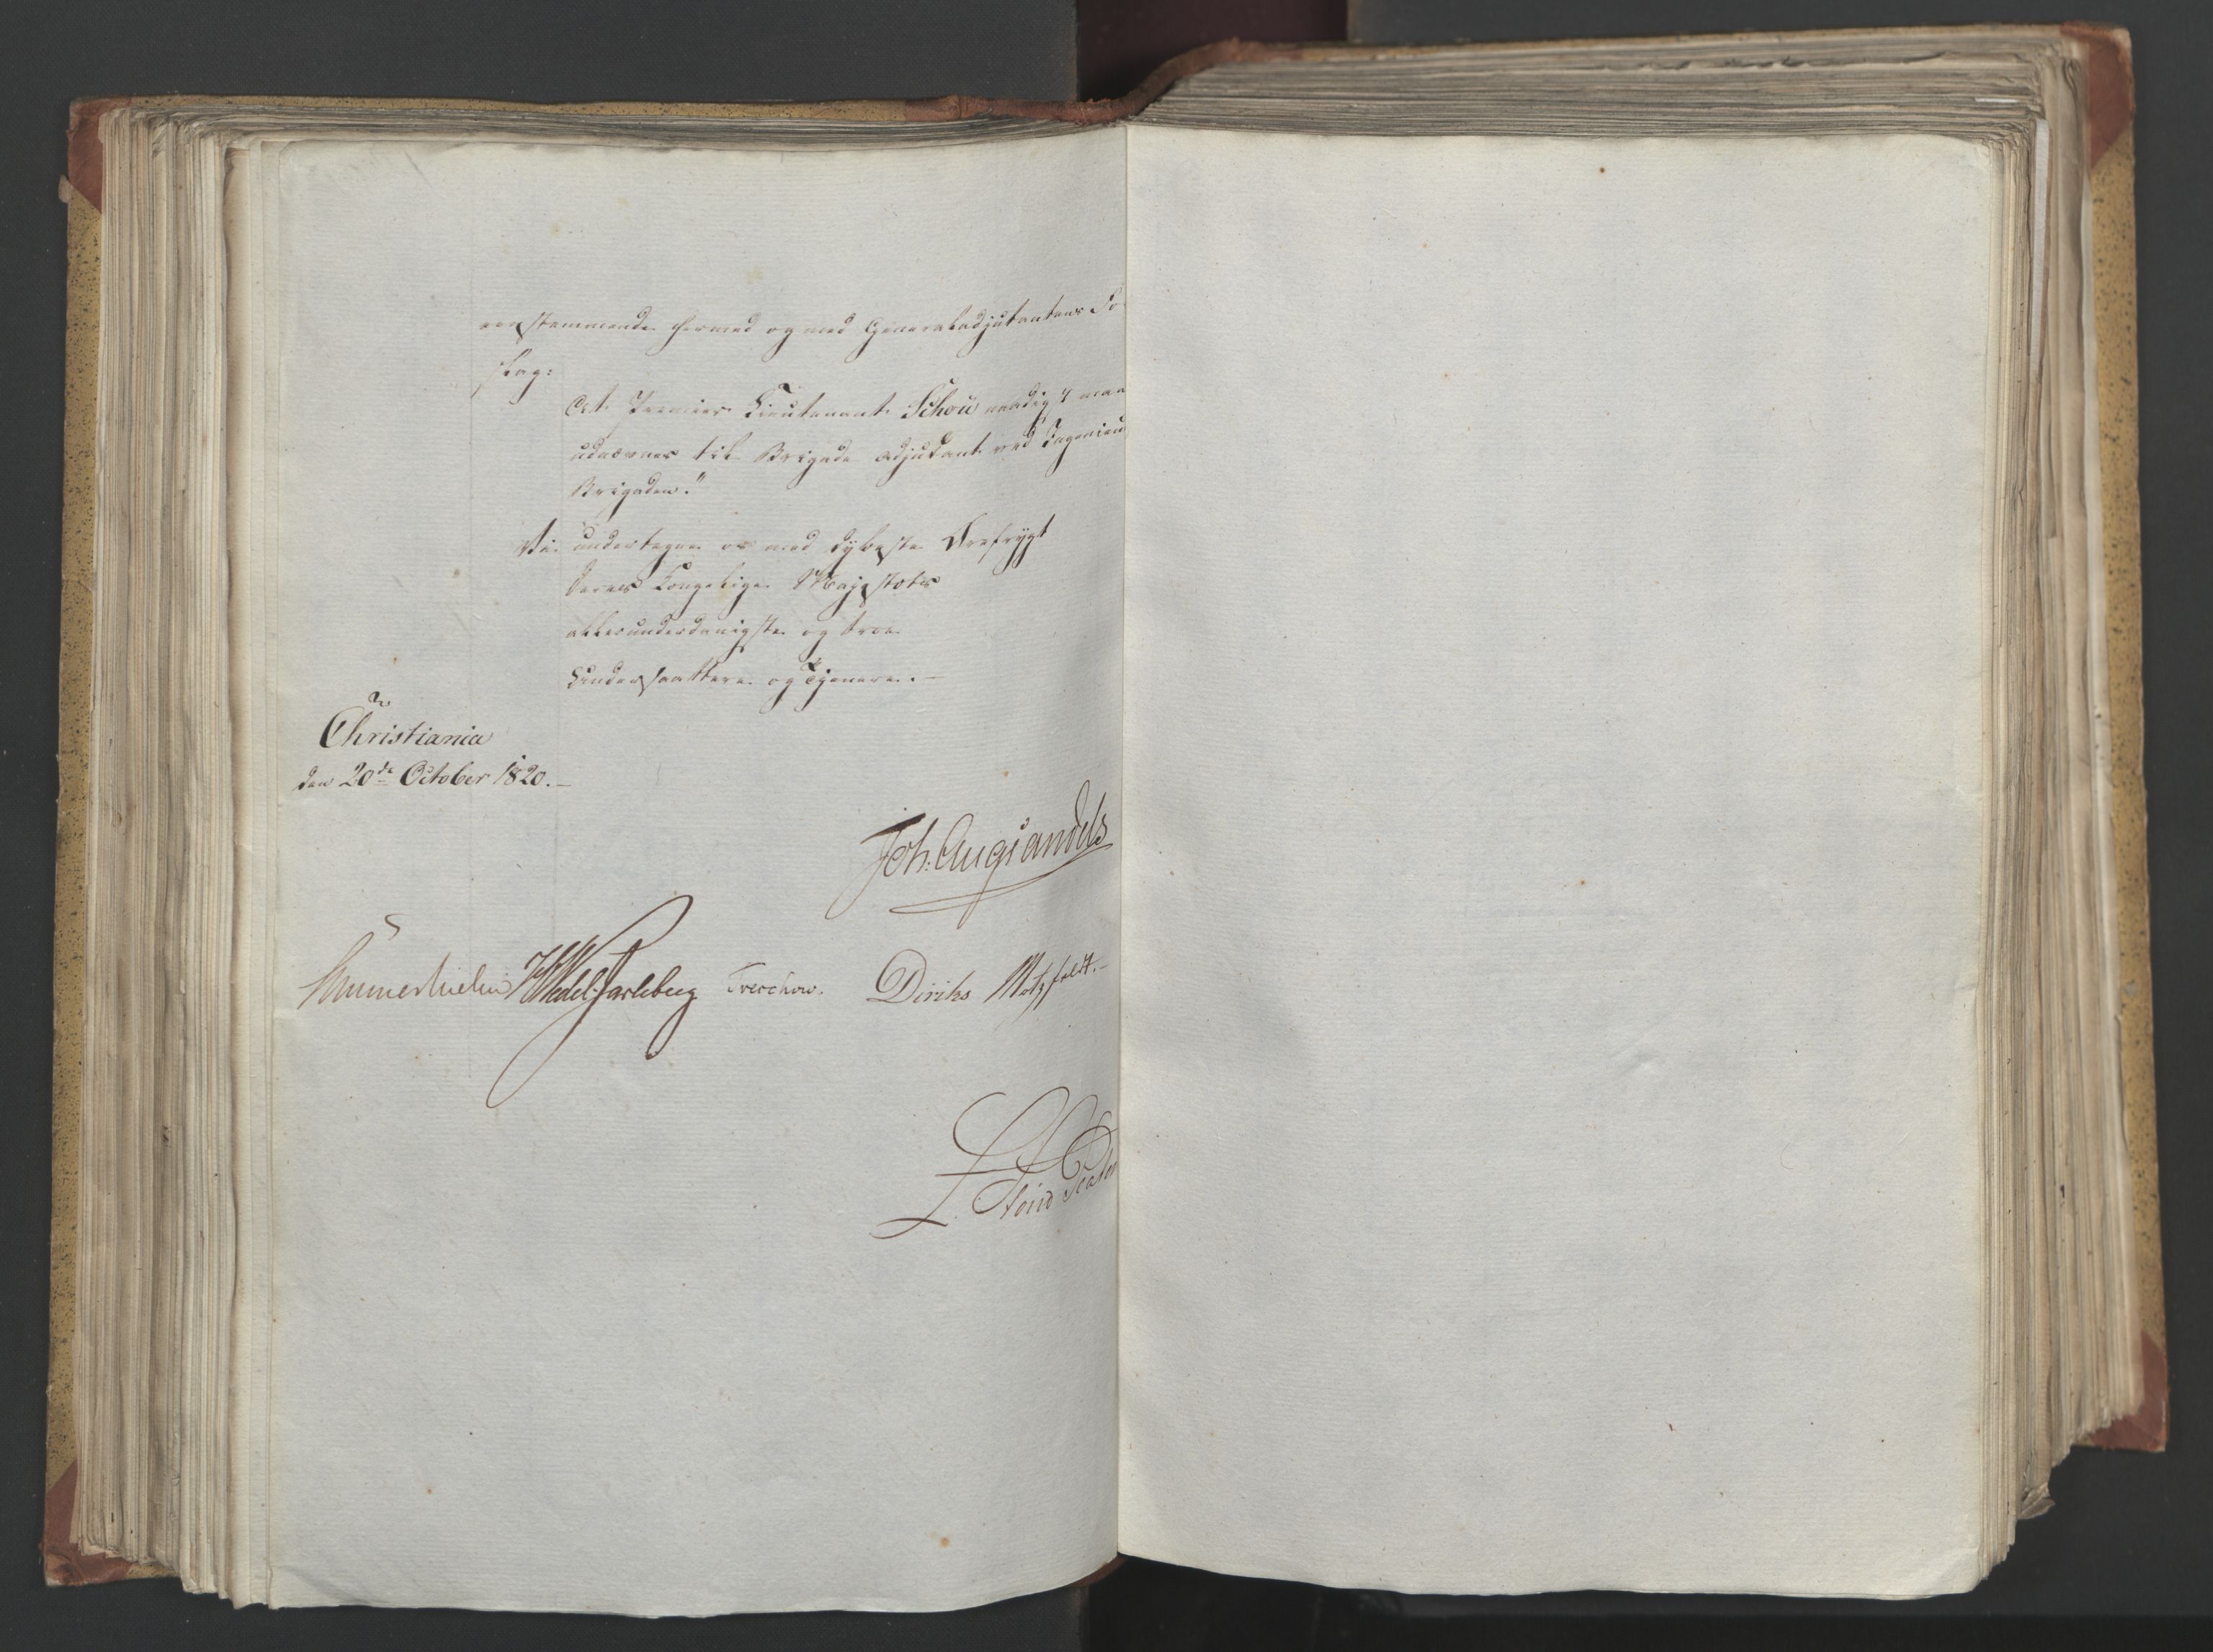 eenstemmende hermed og med Generaladjutantens Fo
slag:
At Premier Lieutenant Schou naadigst maa
udnævnes til Brigade Adjutant ved Ingenieur
Brigaden."
Vi undertegne os med dybeste Ærefrygt
Deres Kongelige Majestæts
allerunderdanigste og troe
Undersaattere og Tjenere. —
Christiania
den 20de October 1820. —
Joh: Aug: Sandels
Sommerhielm HWedel Jarlsberg Treschow. Diriks Motzfeldt. —
L.